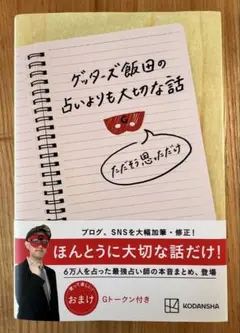 ゲッターズ飯田の
占いよりも大切な話
ただそう思っただけ
ブログ、SNSを大幅加筆・修正！
ほんとうに大切な話だけ！
6万人を占った最強占い師の本音まとめ、登場
おまけ
Gトークン付き
KODANSHA